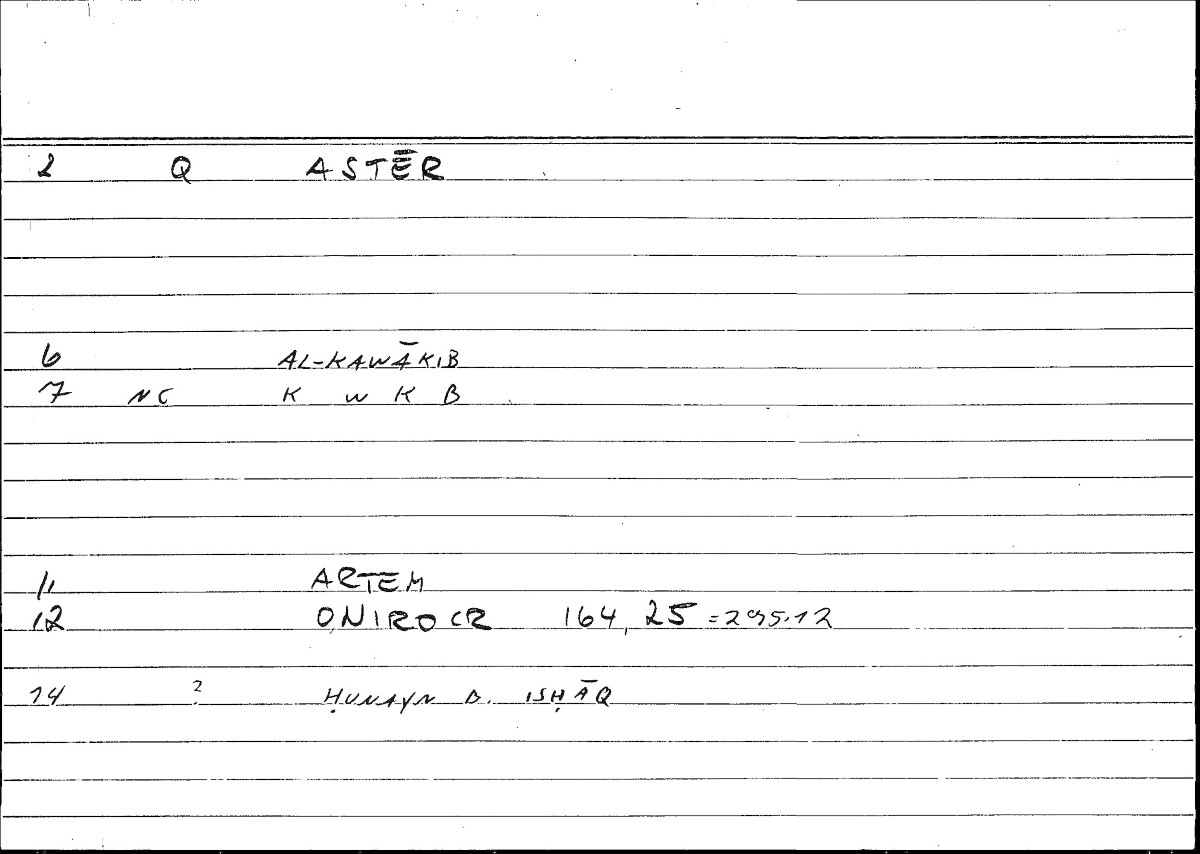 2 Q ASTĒR
6 AL-KAWĀKIB
7 NC K W K B
11 ARTEM
12 ONIROCR 164,25 =295.12
14 ? ḤUNAYN B. ISḤĀQ